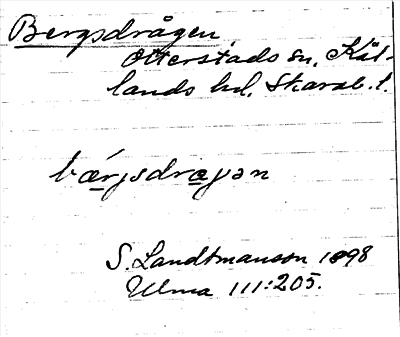 Bergsdrågen
Otterstads sn, Kål-
lands hd, Skarab. l.
bærjsdragən
S. Landtmanson 1898
Ulma 111:205.